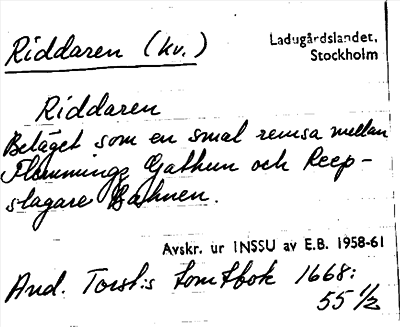 Riddaren (kv.)
Ladugårdslandet,
Stockholm
Riddaren
Beläget som en smal remsa mellan
Flemmings Gathun och Reep-
slagare Bahnen.
Avskr. ur INSSU av E.B. 1958-61
And. Torst:s tomtbok 1668:
55 1/2